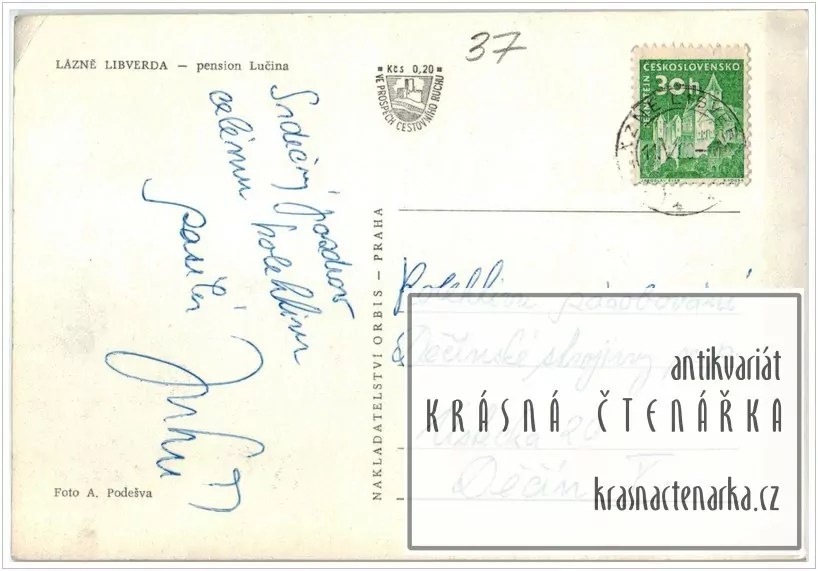 LÁZNĚ LIBVERDA — pension Lučina
37
Kčs 0,20
VE PROSPĚCH CESTOVNÍHO RUCHU
ČESKOSLOVENSKO
30h
Srdečný pozdrav
celému kolektivu
NAKLADATELSTVÍ ORBIS — PRAHA
Kolektivu zásobování
Děčínské strojírny
20
Děčín
antikvariát
KRÁSNÁ ČTENÁŘKA
krasnactenarka.cz
Foto A. Podešva